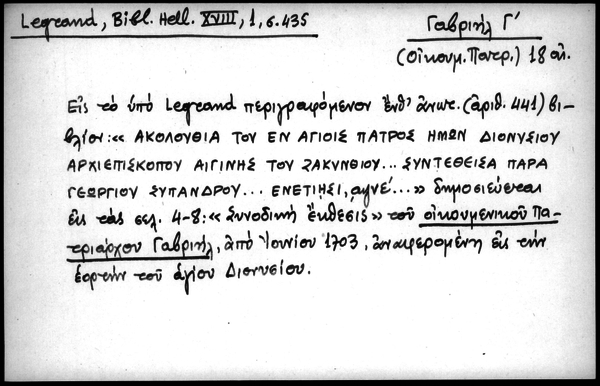 Legrand, Bibl. Hell. XVIII, 1, σ. 435
Γαβριήλ Γ´
(Οἰκουμ. Πατρ.) 18 αἰ.
Εἰς τὸ ὑπὸ Legrand περιγραφόμενον ἔνθ' ἀνωτ. (ἀριθ. 441) βι-
βλίον: «ΑΚΟΛΟΥΘΙΑ ΤΟΥ ΕΝ ΑΓΙΟΙΣ ΠΑΤΡΟΣ ΗΜΩΝ ΔΙΟΝΥΣΙΟΥ
ΑΡΧΙΕΠΙΣΚΟΠΟΥ ΑΙΓΙΝΗΣ ΤΟΥ ΖΑΚΥΝΘΙΟΥ... ΣΥΝΤΕΘΕΙΣΑ ΠΑΡΑ
ΓΕΩΡΓΙΟΥ ΣΥΠΑΝΔΡΟΥ... ΕΝΕΤΙΗΣΙ, αψνέ...» δημοσιεύεται
εἰς τὰς σελ. 4-8: «Συνοδικὴ ἔκθεσις» τοῦ οἰκουμενικοῦ Πα-
τριάρχου Γαβριήλ, ἀπὸ Ἰουνίου 1703, ἀναφερομένη εἰς τὴν
ἑορτὴν τοῦ ἁγίου Διονυσίου.